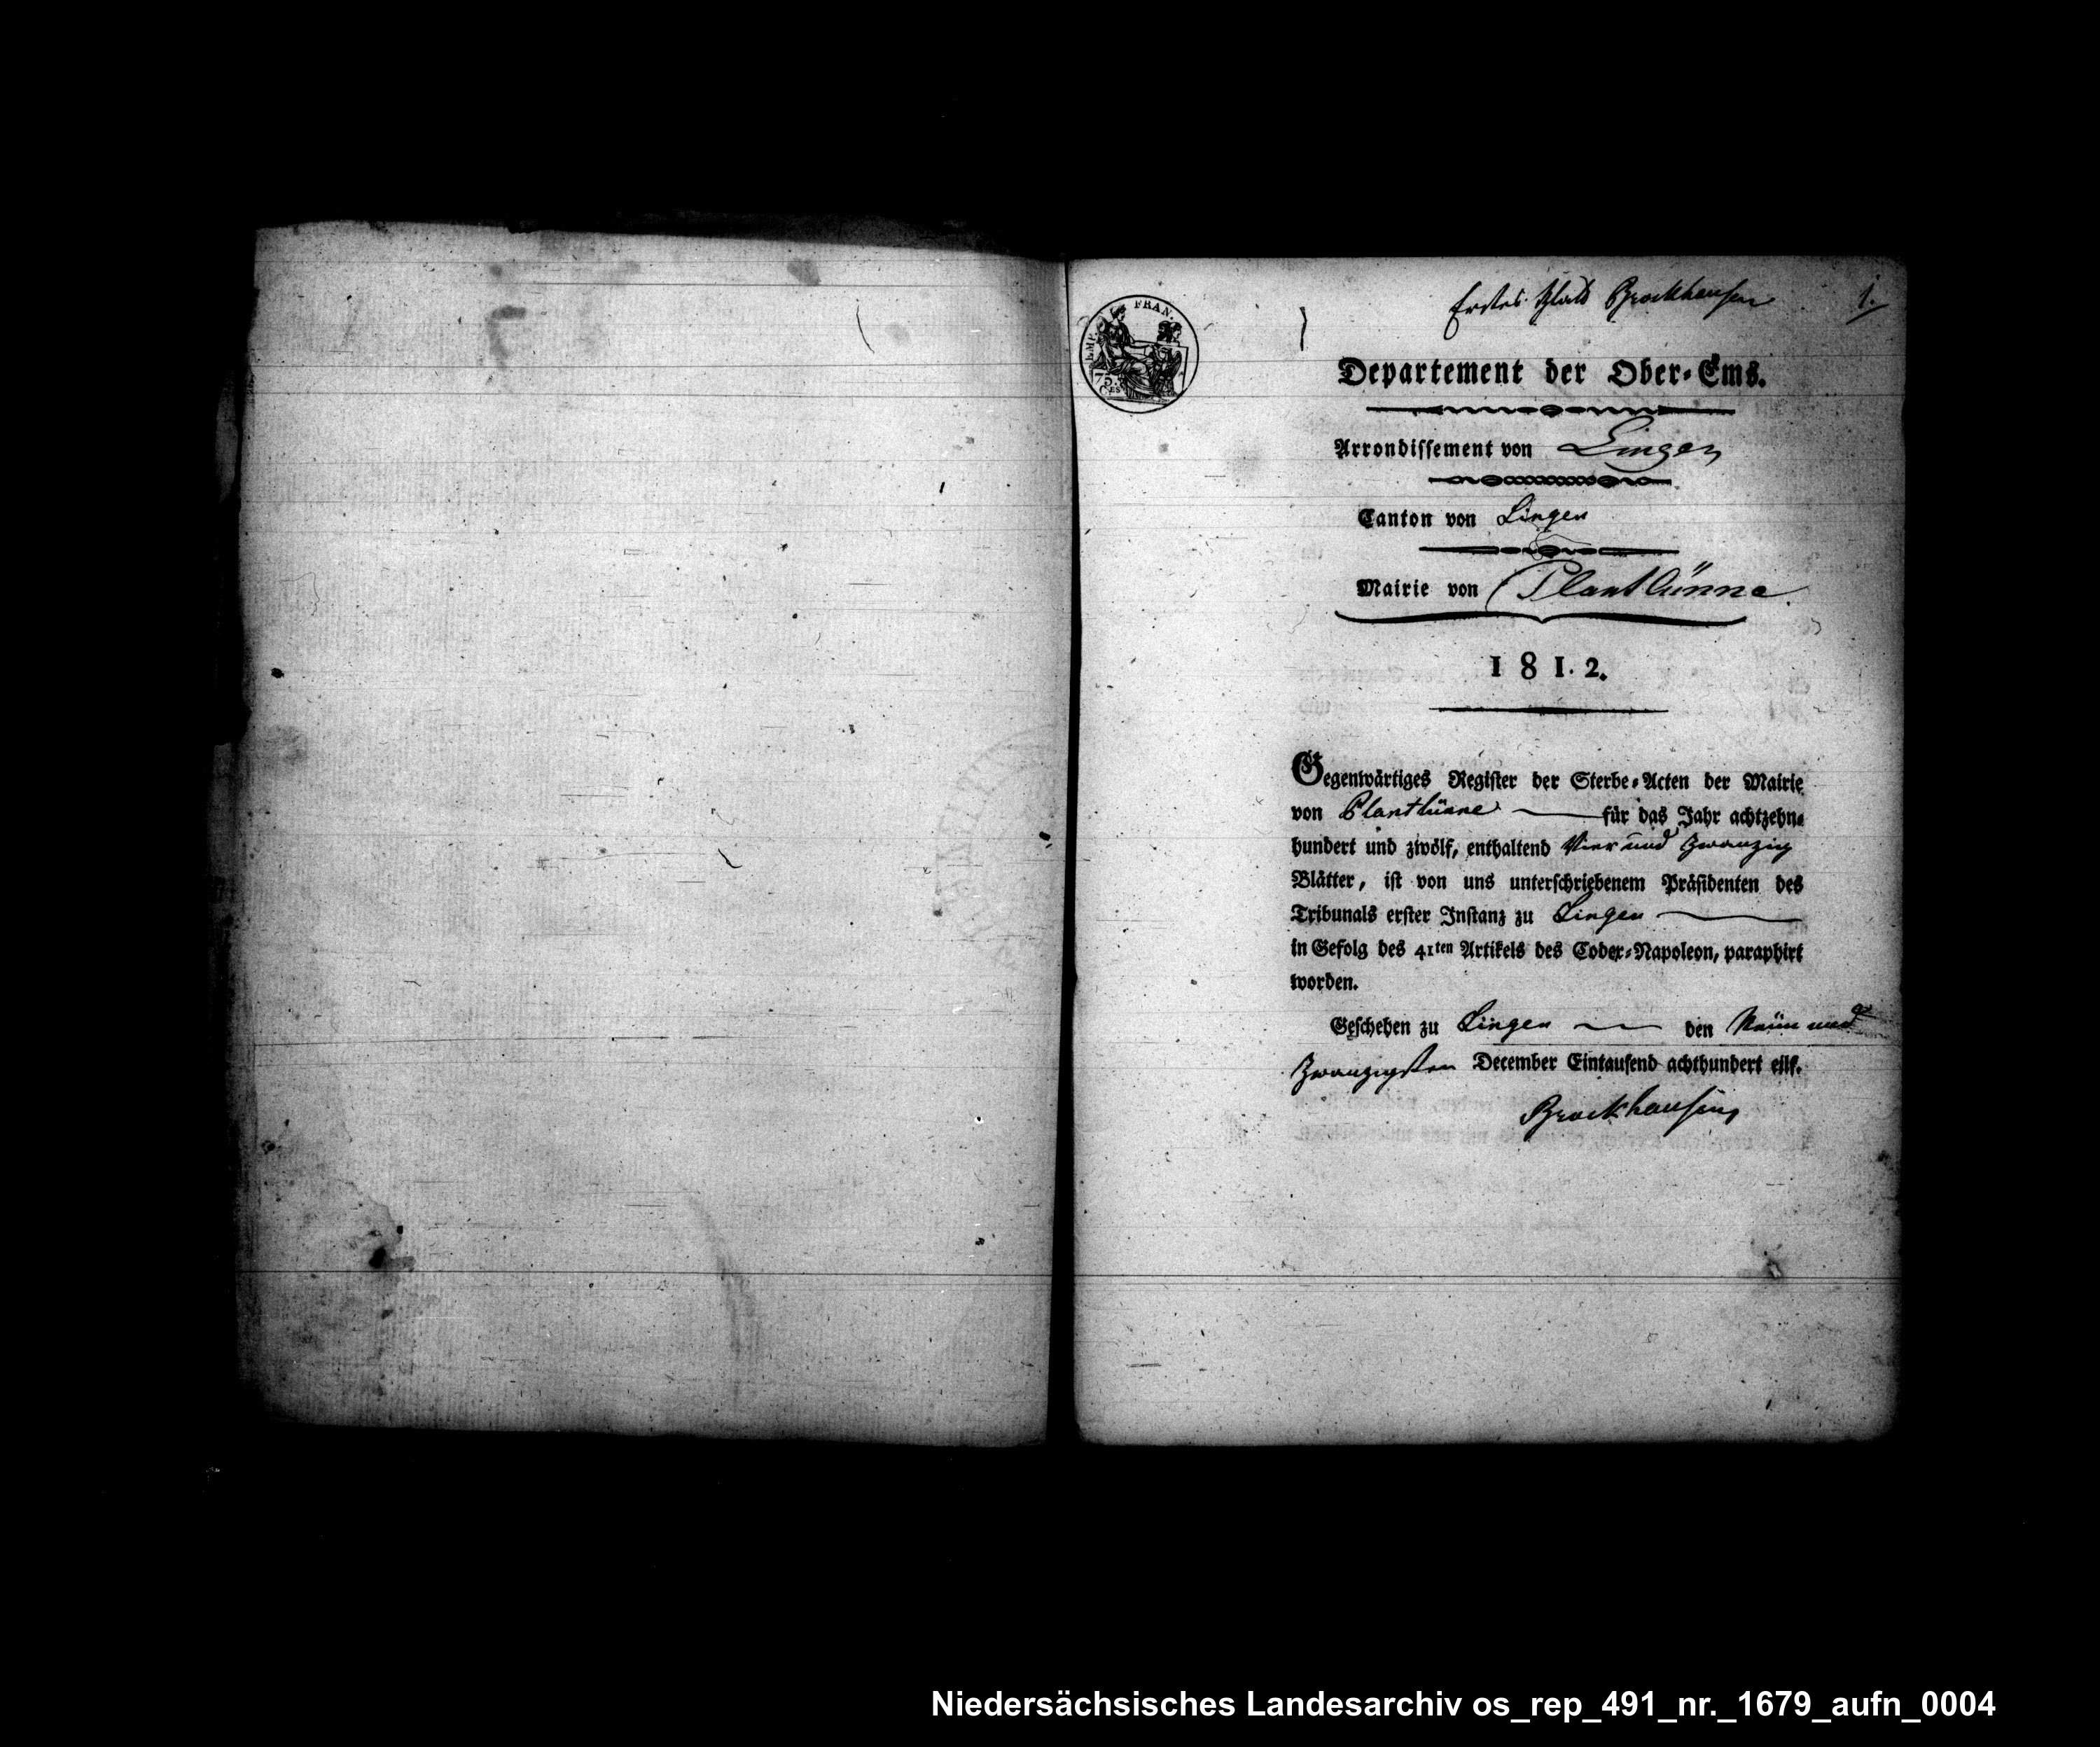 Erstes Blatt Brockhausen
1.
EMP. FRAN.
75.
Departement der Ober-Ems.
Arrondissement von Lingen
Canton von Lingen
Mairie von Plantlünne
1 8 1. 2.
Gegenwärtiges Register der Sterbe-Acten der Mairie
von Plantlünne für das Jahr achtzehn-
hundert und zwölf, enthaltend Vier und Zwanzig
Blätter, ist von uns unterschriebenem Präsidenten des
Tribunals erster Instanz zu Lingen
in Gefolg des 41ten Artikels des Codex-Napoleon, paraphirt
worden.
Geschehen zu Lingen den Neün und
Zwanzigsten December Eintausend achthundert eilf.
Brockhausen
Niedersächsisches Landesarchiv os_rep_491_nr._1679_aufn_0004